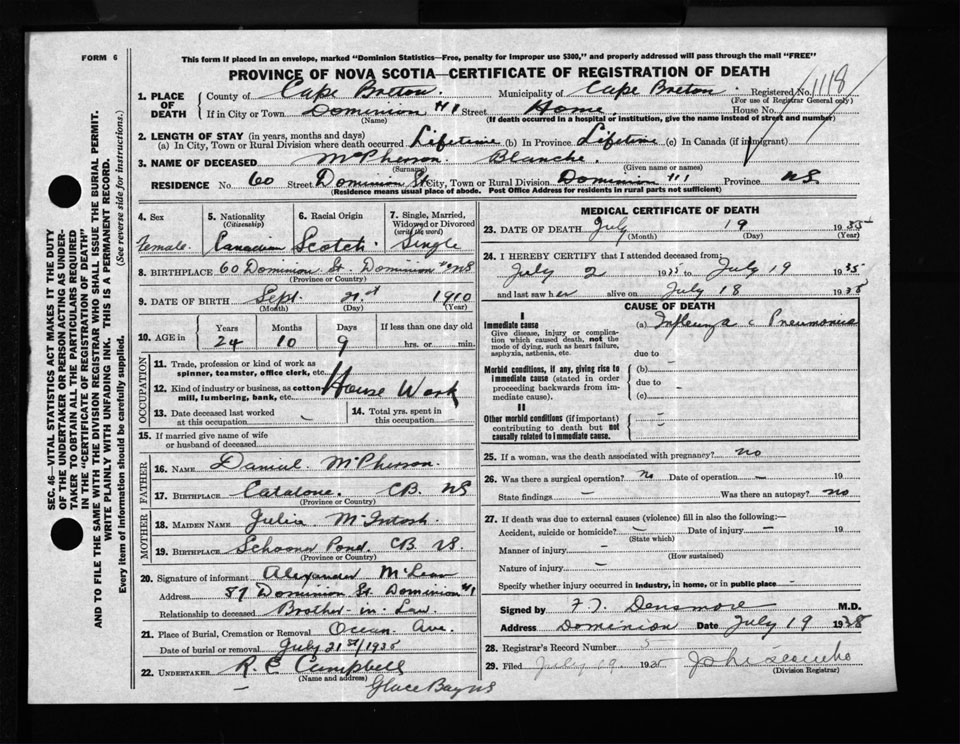 FORM 6
This form if placed in an envelope, marked "Dominion Statistics—Free, penalty for improper use $300," and properly addressed will pass through the mail "FREE"
PROVINCE OF NOVA SCOTIA—CERTIFICATE OF REGISTRATION OF DEATH
1118
1. PLACE OF DEATH
County of Cape Breton. Municipality of Cape Breton. Registered No.
(For use of Registrar General only)
If in City or Town Dominion #1 Street Home, House No.
(Name) (If death occurred in a hospital or institution, give the name instead of street and number)
2. LENGTH OF STAY (in years, months and days)
(a) In City, Town or Rural Division where death occurred Lifetime (b) In Province Lifetime (c) In Canada (if immigrant)
3. NAME OF DECEASED McPherson. Blanche.
(Surname) (Given name or names)
RESIDENCE No. 60 Street Dominion St. City, Town or Rural Division Dominion #1 Province NS
(Residence means usual place of abode. Post Office Address for residents in rural parts not sufficient)
4. Sex
Female.
5. Nationality
(Citizenship)
Canadian
6. Racial Origin
Scotch.
7. Single, Married, Widowed or Divorced
(write the word)
Single
8. BIRTHPLACE 60 Dominion St. Dominion #1 NS
(Province or Country)
9. DATE OF BIRTH Sept. 21st 1910
(Month) (Day) (Year)
10. AGE in
Years Months Days If less than one day old
24 10 9 hrs. or min.
OCCUPATION
11. Trade, profession or kind of work as spinner, teamster, office clerk, etc.
12. Kind of industry or business, as cotton mill, lumbering, bank, etc.
House Work
13. Date deceased last worked at this occupation
14. Total yrs. spent in this occupation
15. If married give name of wife or husband of deceased
FATHER
16. NAME Daniel. McPherson.
17. BIRTHPLACE Catalone. CB. NS
(Province or Country)
MOTHER
18. MAIDEN NAME Julia McIntosh.
19. BIRTHPLACE Schooner Pond. CB. NS.
(Province or Country)
20. Signature of informant Alexander McLean
Address 87 Dominion St. Dominion #1
Relationship to deceased Brother-in-Law.
21. Place of Burial, Cremation or Removal Ocean Ave.
Date of burial or removal July 21st/1935
22. UNDERTAKER R. E Campbell
(Name and address)
Glace Bay NS
MEDICAL CERTIFICATE OF DEATH
23. DATE OF DEATH July 19 1935
(Month) (Day) (Year)
24. I HEREBY CERTIFY that I attended deceased from:
July 2 1935 to July 19 1935
and last saw her alive on July 18 1935
CAUSE OF DEATH
I
Immediate cause
Give disease, injury or complication which caused death, not the mode of dying, such as heart failure, asphyxia, asthenia, etc.
(a) Influenza c Pneumonia
due to –
Morbid conditions, if any, giving rise to immediate cause (stated in order proceeding backwards from immediate cause).
(b)
due to –
(c)
II
Other morbid conditions (if important) contributing to death but not causally related to immediate cause.
25. If a woman, was the death associated with pregnancy? no
26. Was there a surgical operation? No Date of operation – 19
State findings – Was there an autopsy? no
27. If death was due to external causes (violence) fill in also the following:—
Accident, suicide or homicide? – Date of injury – 19
(State which)
Manner of injury –
(How sustained)
Nature of injury –
Specify whether injury occurred in industry, in home, or in public place –
Signed by F. T. Densmore M.D.
Address Dominion Date July 19 1935
28. Registrar's Record Number 5
29. Filed July 19. 1935
(Division Registrar)
SEC. 46—VITAL STATISTICS ACT MAKES IT THE DUTY OF THE UNDERTAKER OR PERSON ACTING AS UNDERTAKER TO OBTAIN ALL THE PARTICULARS REQUIRED IN THE "CERTIFICATE OF REGISTRATION OF DEATH" AND TO FILE THE SAME WITH THE DIVISION REGISTRAR WHO SHALL ISSUE THE BURIAL PERMIT.
WRITE PLAINLY WITH UNFADING INK. THIS IS A PERMANENT RECORD.
Every item of information should be carefully supplied. (See reverse side for instructions.)